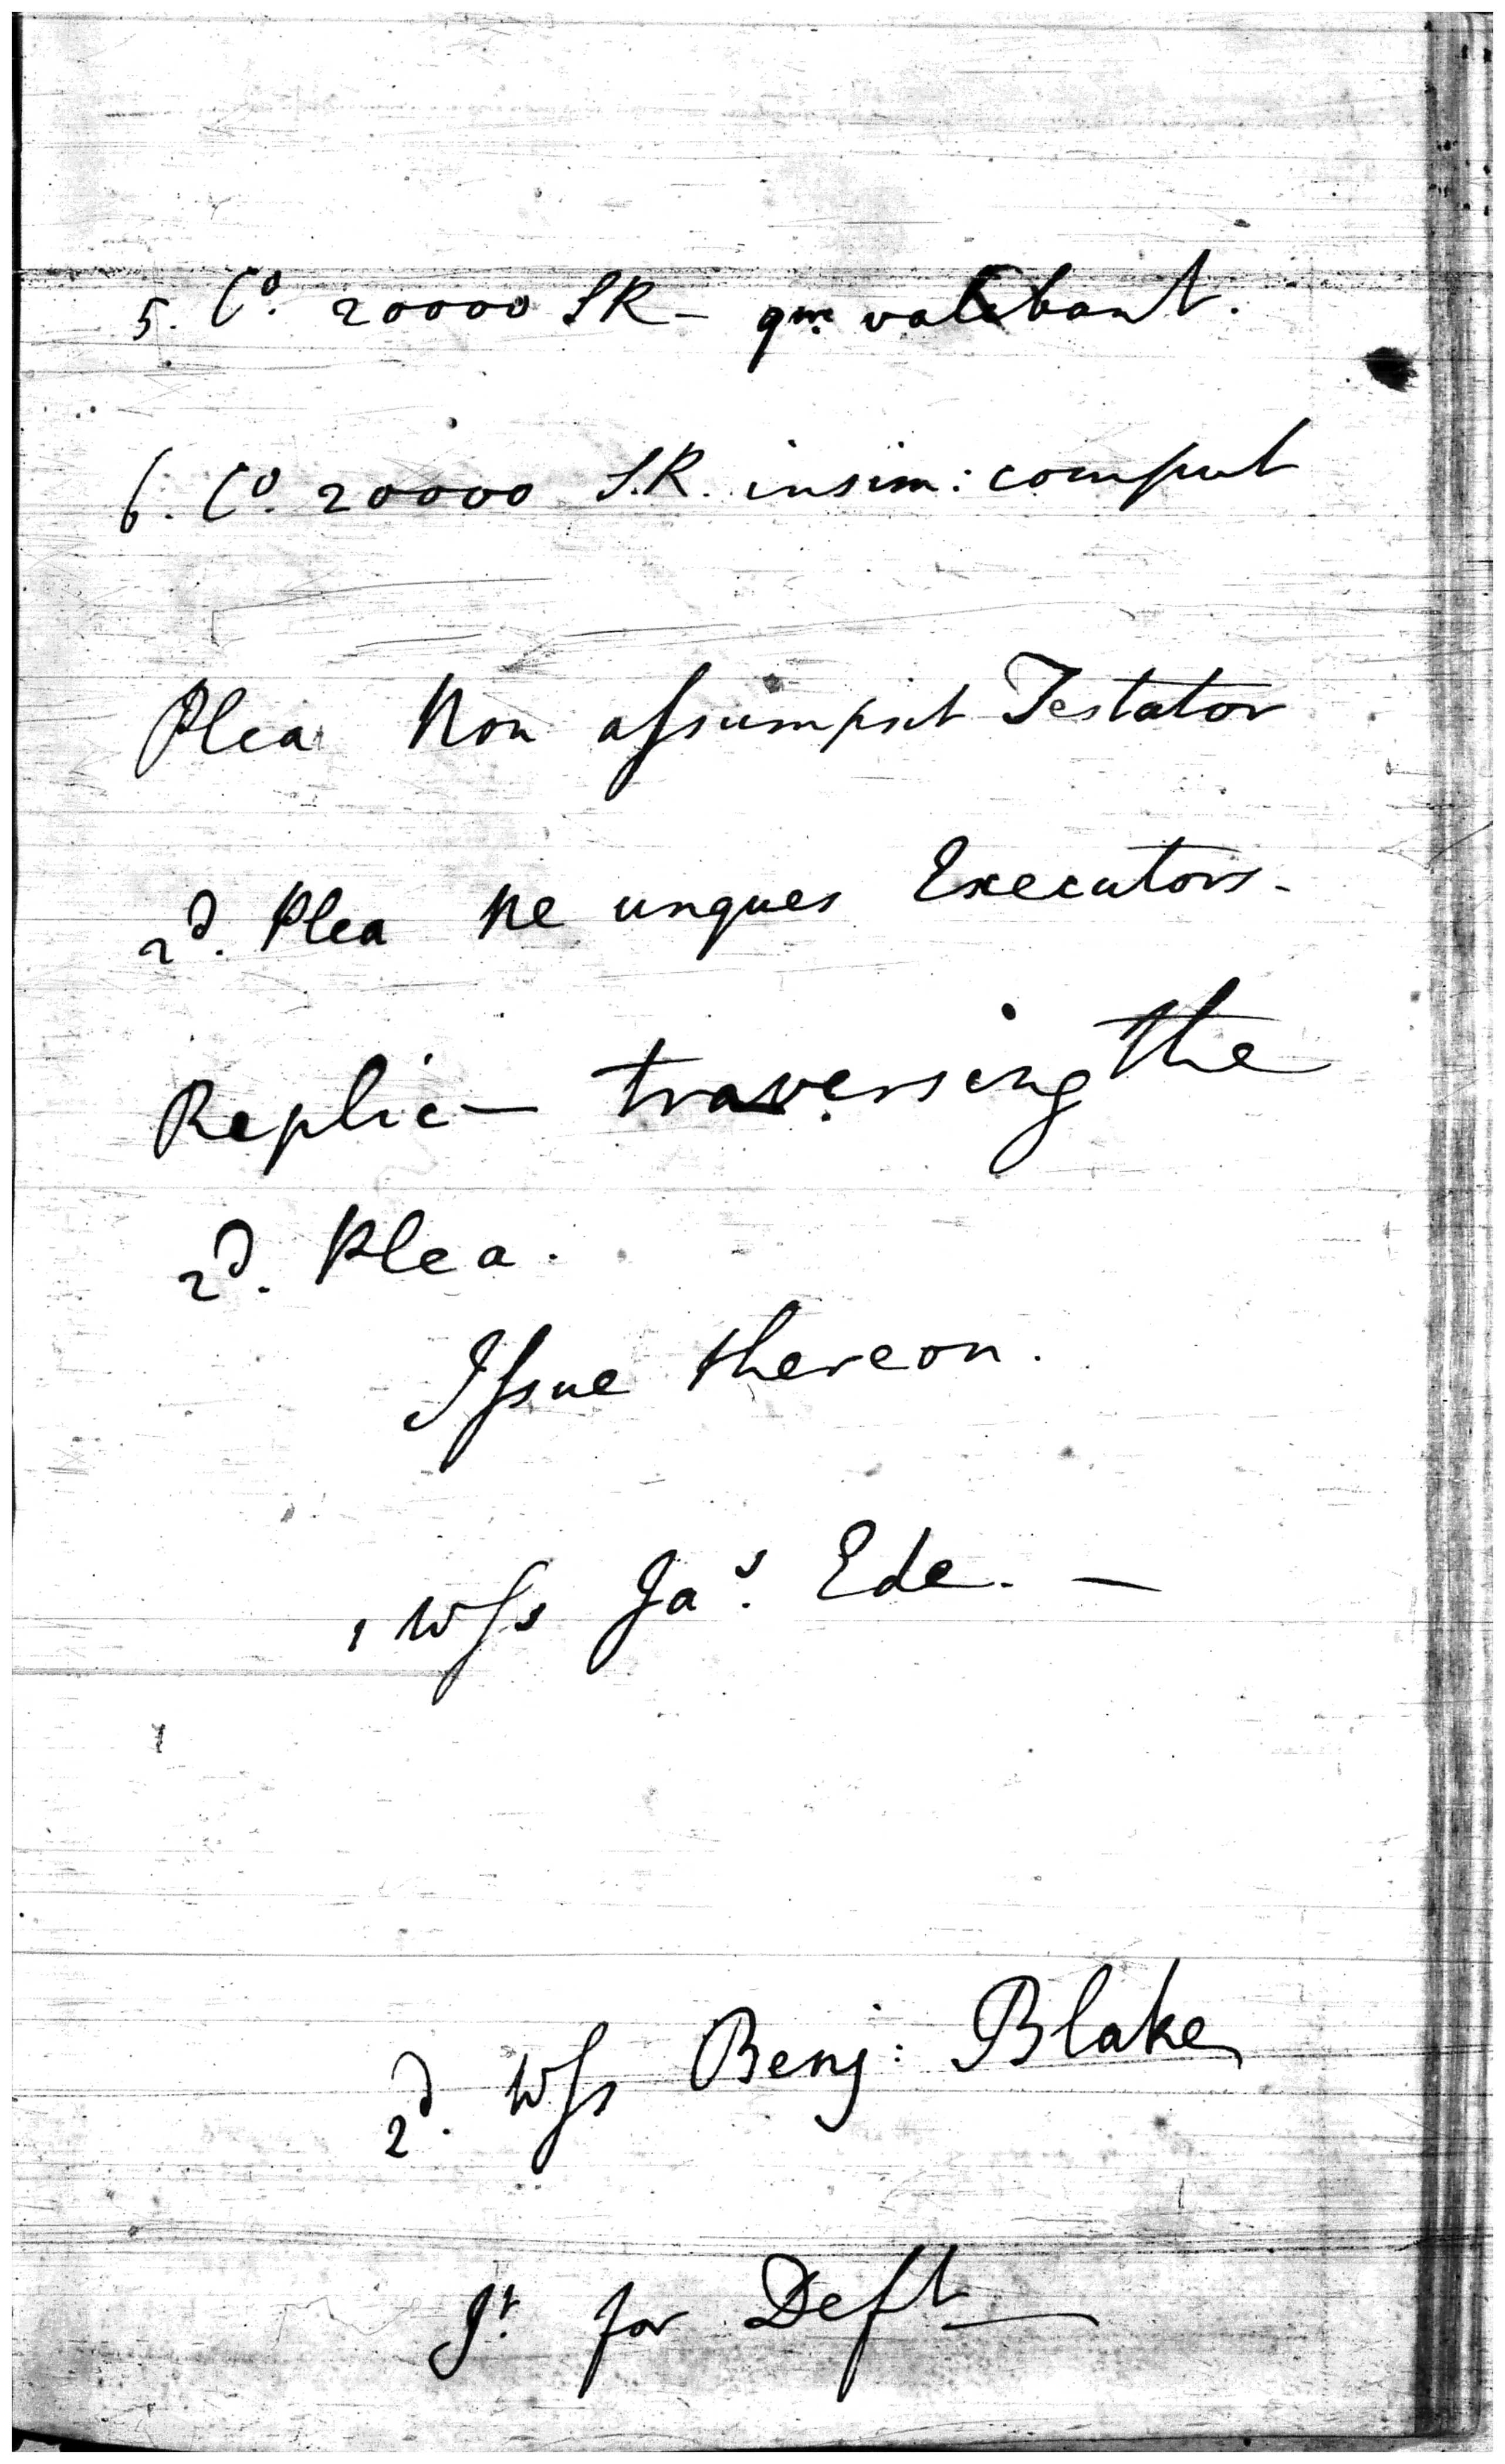 5. Co. 20000 SR - qm. valebant.
6. Co. 20000 S.R. insim: comput
Plea Non assumpsit Testator
2d. Plea Ne unques Executors.
Replic— traversing the
2d. Plea.
Issue thereon.
1 Wss Jas. Ede. —
2d. Wss Benj: Blake
Jt. for Deft